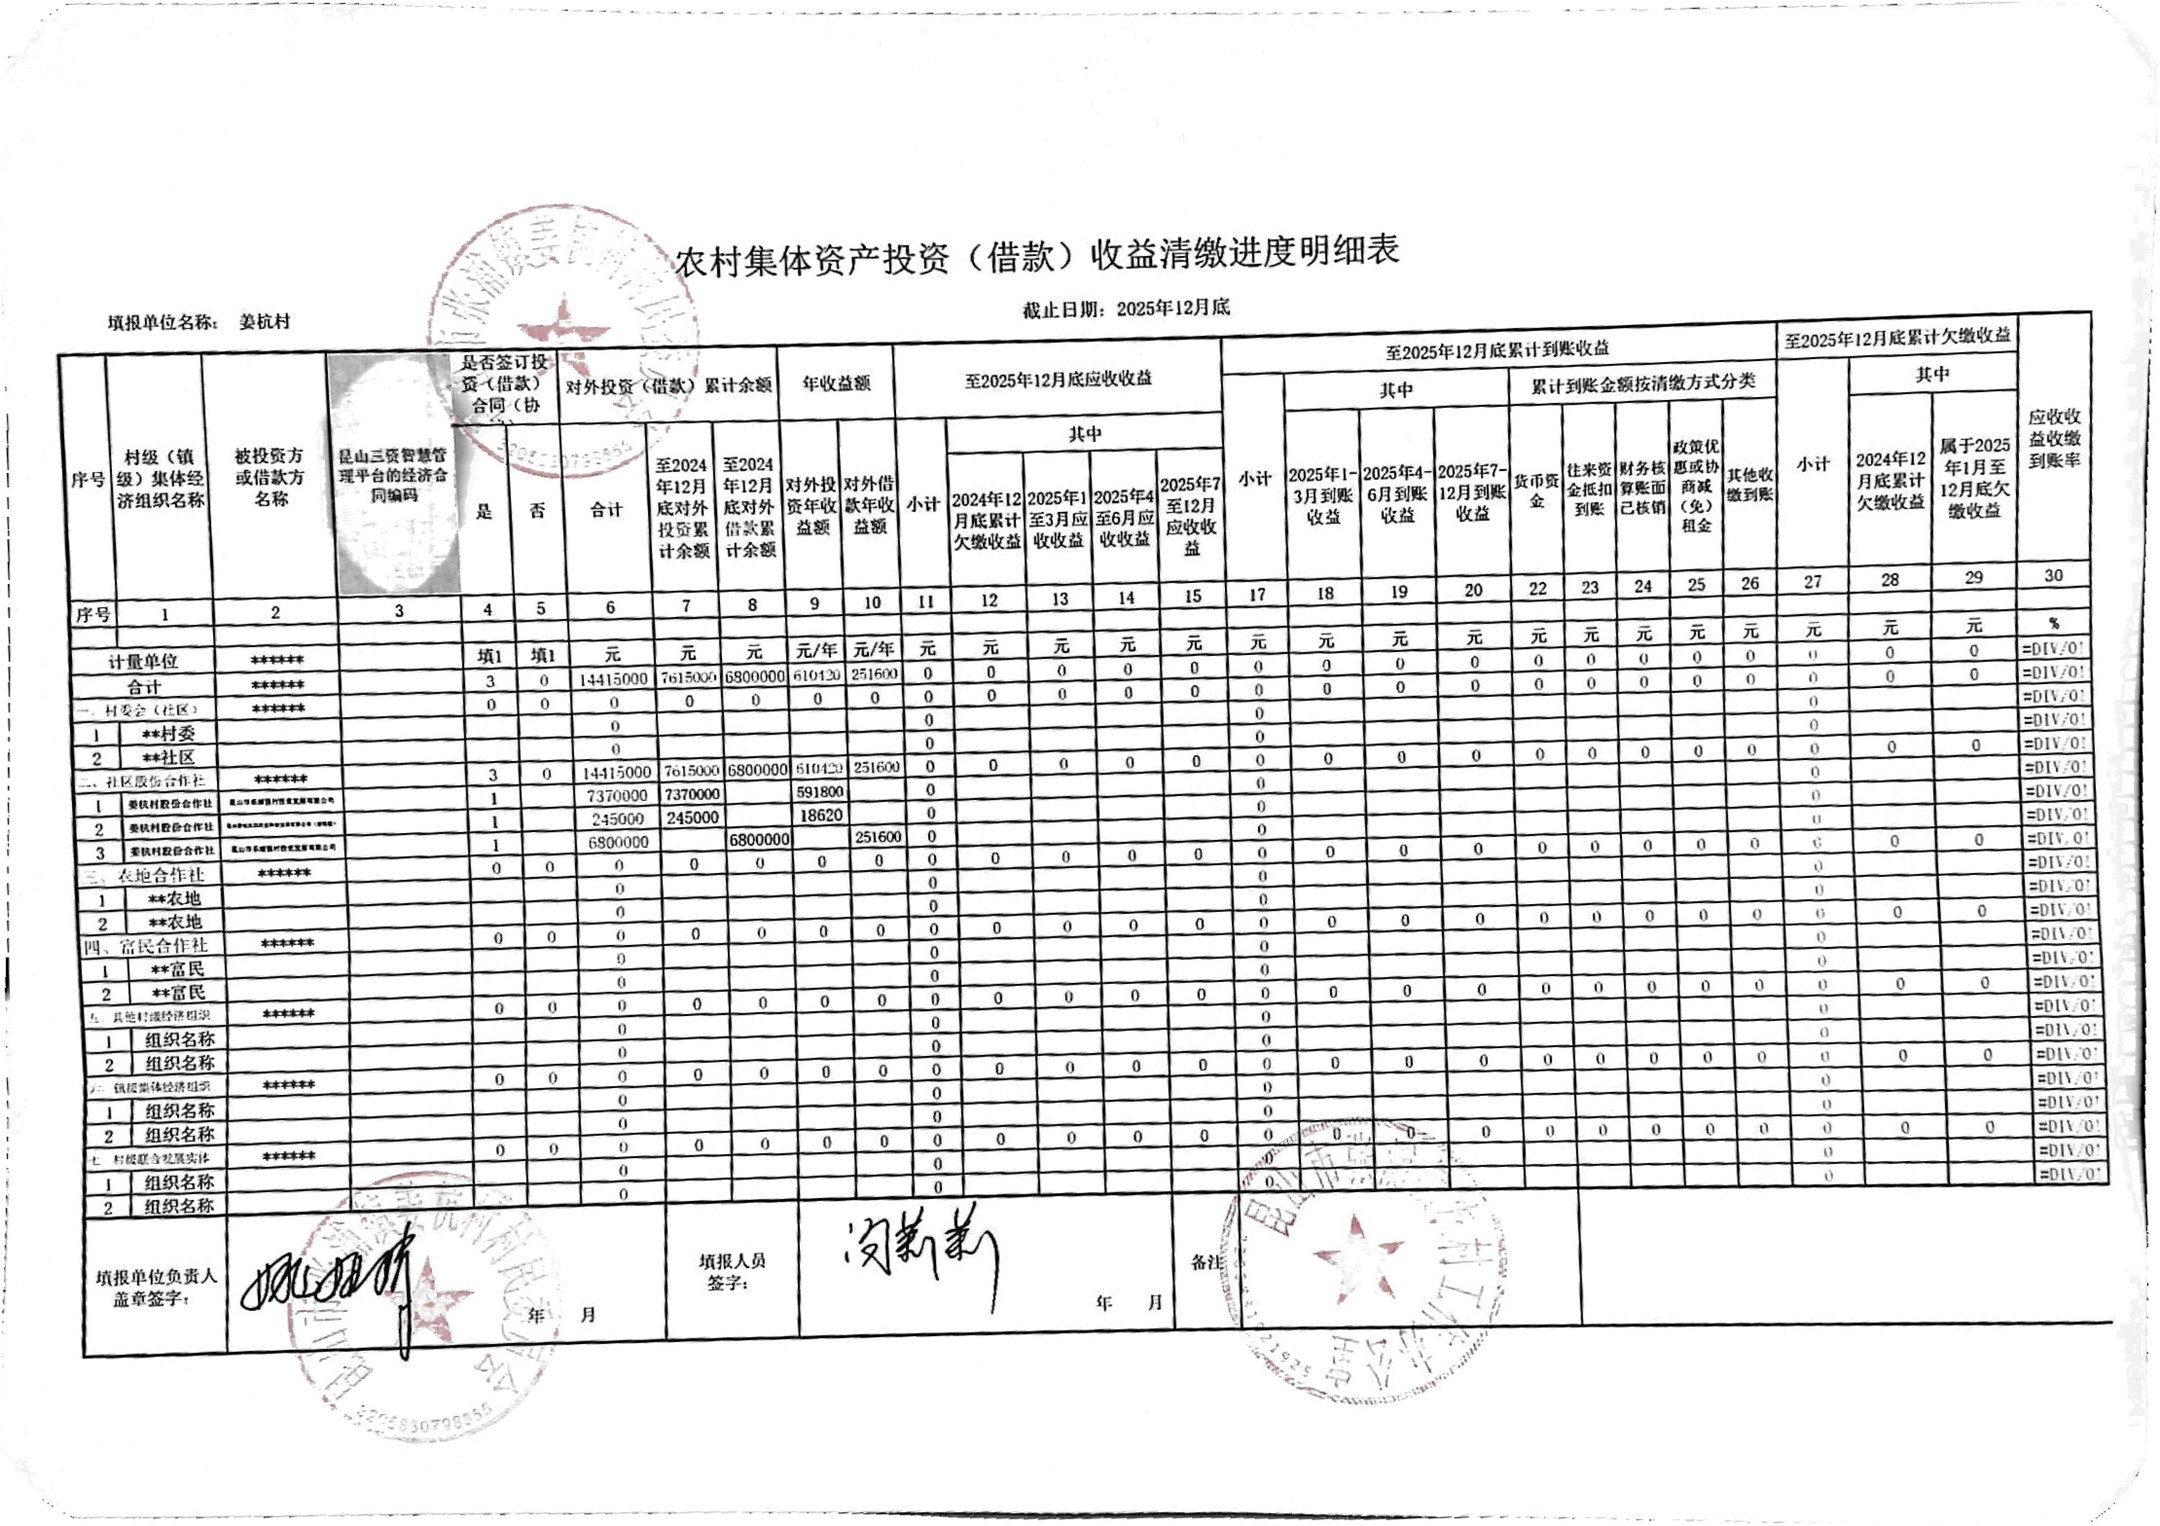 农村集体资产投资（借款）收益清缴进度明细表
填报单位名称： 姜杭村 截止日期：2025年12月底
序号 村级（镇级）集体经济组织名称 被投资方或借款方名称 昆山三资智慧管理平台的经济合同编码 是否签订投资（借款）合同（协 对外投资（借款）累计余额 年收益额 至2025年12月底应收收益 至2025年12月底累计到账收益 至2025年12月底累计欠缴收益 应收收益收缴到账率
其中 其中 累计到账金额按清缴方式分类 其中
是 否 合计 至2024年12月底对外投资累计余额 至2024年12月底对外借款累计余额 对外投资年收益额 对外借款年收益额 小计 2024年12月底累计欠缴收益 2025年1至3月应收收益 2025年4至6月应收收益 2025年7至12月应收收益 小计 2025年1-3月到账收益 2025年4-6月到账收益 2025年7-12月到账收益 货币资金 往来资金抵扣到账 财务核算账面已核销 政策优惠或协商减（免）租金 其他收缴到账 小计 2024年12月底累计欠缴收益 属于2025年1月至12月底欠缴收益
序号 1 2 3 4 5 6 7 8 9 10 11 12 13 14 15 17 18 19 20 22 23 24 25 26 27 28 29 30
计量单位 ****** 填1 填1 元 元 元 元/年 元/年 元 元 元 元 元 元 元 元 元 元 元 元 元 元 元 元 元 %
合计 ****** 3 0 14415000 7615000 6800000 610420 251600 0 0 0 0 0 0 0 0 0 0 0 0 0 0 0 0 0 =DIV/0!
一、村委会（社区） ****** 0 0 0 0 0 0 0 0 0 0 0 0 0 0 0 0 0 0 0 0 0 0 0 0 =DIV/0!
1 **村委 0 0 0 0 =DIV/0!
2 **社区 0 0 0 0 =DIV/0!
二、社区股份合作社 ****** 3 0 14415000 7615000 6800000 610420 251600 0 0 0 0 0 0 0 0 0 0 0 0 0 0 0 0 0 =DIV/0!
1 姜杭村股份合作社 1 7370000 7370000 591800 0 0 0 =DIV/0!
2 姜杭村股份合作社 1 245000 245000 18620 0 0 0 =DIV/0!
3 姜杭村股份合作社 1 6800000 6800000 251600 0 0 0 =DIV/0!
三、农地合作社 ****** 0 0 0 0 0 0 0 0 0 0 0 0 0 0 0 0 0 0 0 0 0 0 0 0 =DIV/0!
1 **农地 0 0 0 0 =DIV/0!
2 **农地 0 0 0 0 =DIV/0!
四、富民合作社 ****** 0 0 0 0 0 0 0 0 0 0 0 0 0 0 0 0 0 0 0 0 0 0 0 0 =DIV/0!
1 **富民 0 0 0 0 =DIV/0!
2 **富民 0 0 0 0 =DIV/0!
五、其他村级经济组织 ****** 0 0 0 0 0 0 0 0 0 0 0 0 0 0 0 0 0 0 0 0 0 0 0 0 =DIV/0!
1 组织名称 0 0 0 0 =DIV/0!
2 组织名称 0 0 0 0 =DIV/0!
六、镇级集体经济组织 ****** 0 0 0 0 0 0 0 0 0 0 0 0 0 0 0 0 0 0 0 0 0 0 0 0 =DIV/0!
1 组织名称 0 0 0 0 =DIV/0!
2 组织名称 0 0 0 0 =DIV/0!
七、村级联合发展实体 ****** 0 0 0 0 0 0 0 0 0 0 0 0 0 0 0 0 0 0 0 0 0 0 0 0 =DIV/0!
1 组织名称 0 0 0 0 =DIV/0!
2 组织名称 0 0 0 0 =DIV/0!
填报单位负责人盖章签字： 年 月 填报人员签字： 年 月 备注